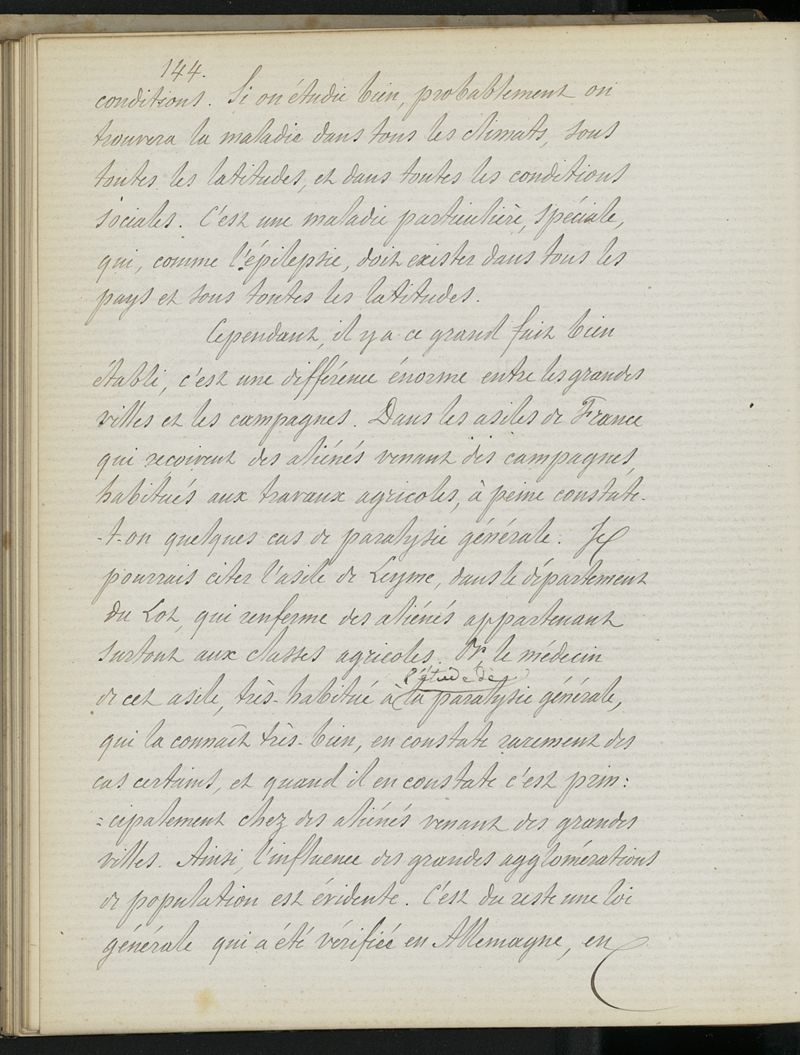 144.
conditions. Si on étudie bien, probablement on
trouvera la maladie dans tous les climats, sous
toutes les latitudes, et dans toutes les conditions
sociales. C'est une maladie particulière, spéciale,
qui, comme l'épilepsie, doit exister dans tous les
pays et sous toutes les latitudes.
Cependant, il y a ce grand fait bien
établi, c'est une différence énorme entre les grandes
villes et les campagnes. Dans les asiles de France
qui reçoivent des aliénés venant des campagnes,
habitués aux travaux agricoles, à peine constate-
-t-on quelques cas de paralysie générale. Je
pourrais citer l'asile de Leyme, dans le département
du Lot, qui renferme des aliénés appartenant
surtout aux classes agricoles. Or, le médecin
l'étude de
de cet asile, très-habitué à la paralysie générale,
qui la connaît très-bien, en constate rarement des
cas certains, et quand il en constate c'est prin:
=cipalement chez des aliénés venant des grandes
villes. Ainsi, l'influence des grandes agglomérations
de population est évidente. C'est du reste une loi
générale qui a été vérifiée en Allemagne, en